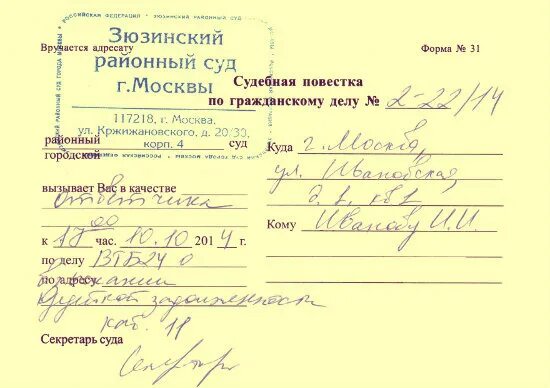 РОССИЙСКАЯ ФЕДЕРАЦИЯ • ЗЮЗИНСКИЙ РАЙОННЫЙ СУД
Зюзинский
районный суд
г.Москвы
117218, г. Москва,
ул. Кржижановского, д. 20/30,
корп. 4
Вручается адресату
Форма № 31
Судебная повестка
по гражданскому делу № 2-22/14
районный суд
городской
вызывает Вас в качестве
ответчика
к 17 00 час. 10.10 2014 г.
по делу ВТБ24 о
по адресу взыскании
кредитной задолженности
каб. 11
Секретарь суда
Куда г. Москва,
ул. Ивановская,
д. 1, кв 1
Кому Иванову И.И.